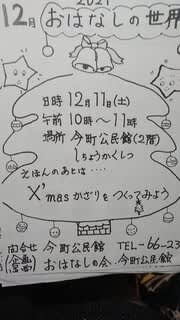 2021
12月 おはなしの世界
日時 12月11日(土)
午前 10時〜11時
場所 今町公民館(2階)
しちょうかくしつ
えほんのあとは‥‥
X'masかざりをつくってみよう
問合せ 今町公民館 TEL-66-23
(企画運営) おはなしの会・今町公民館